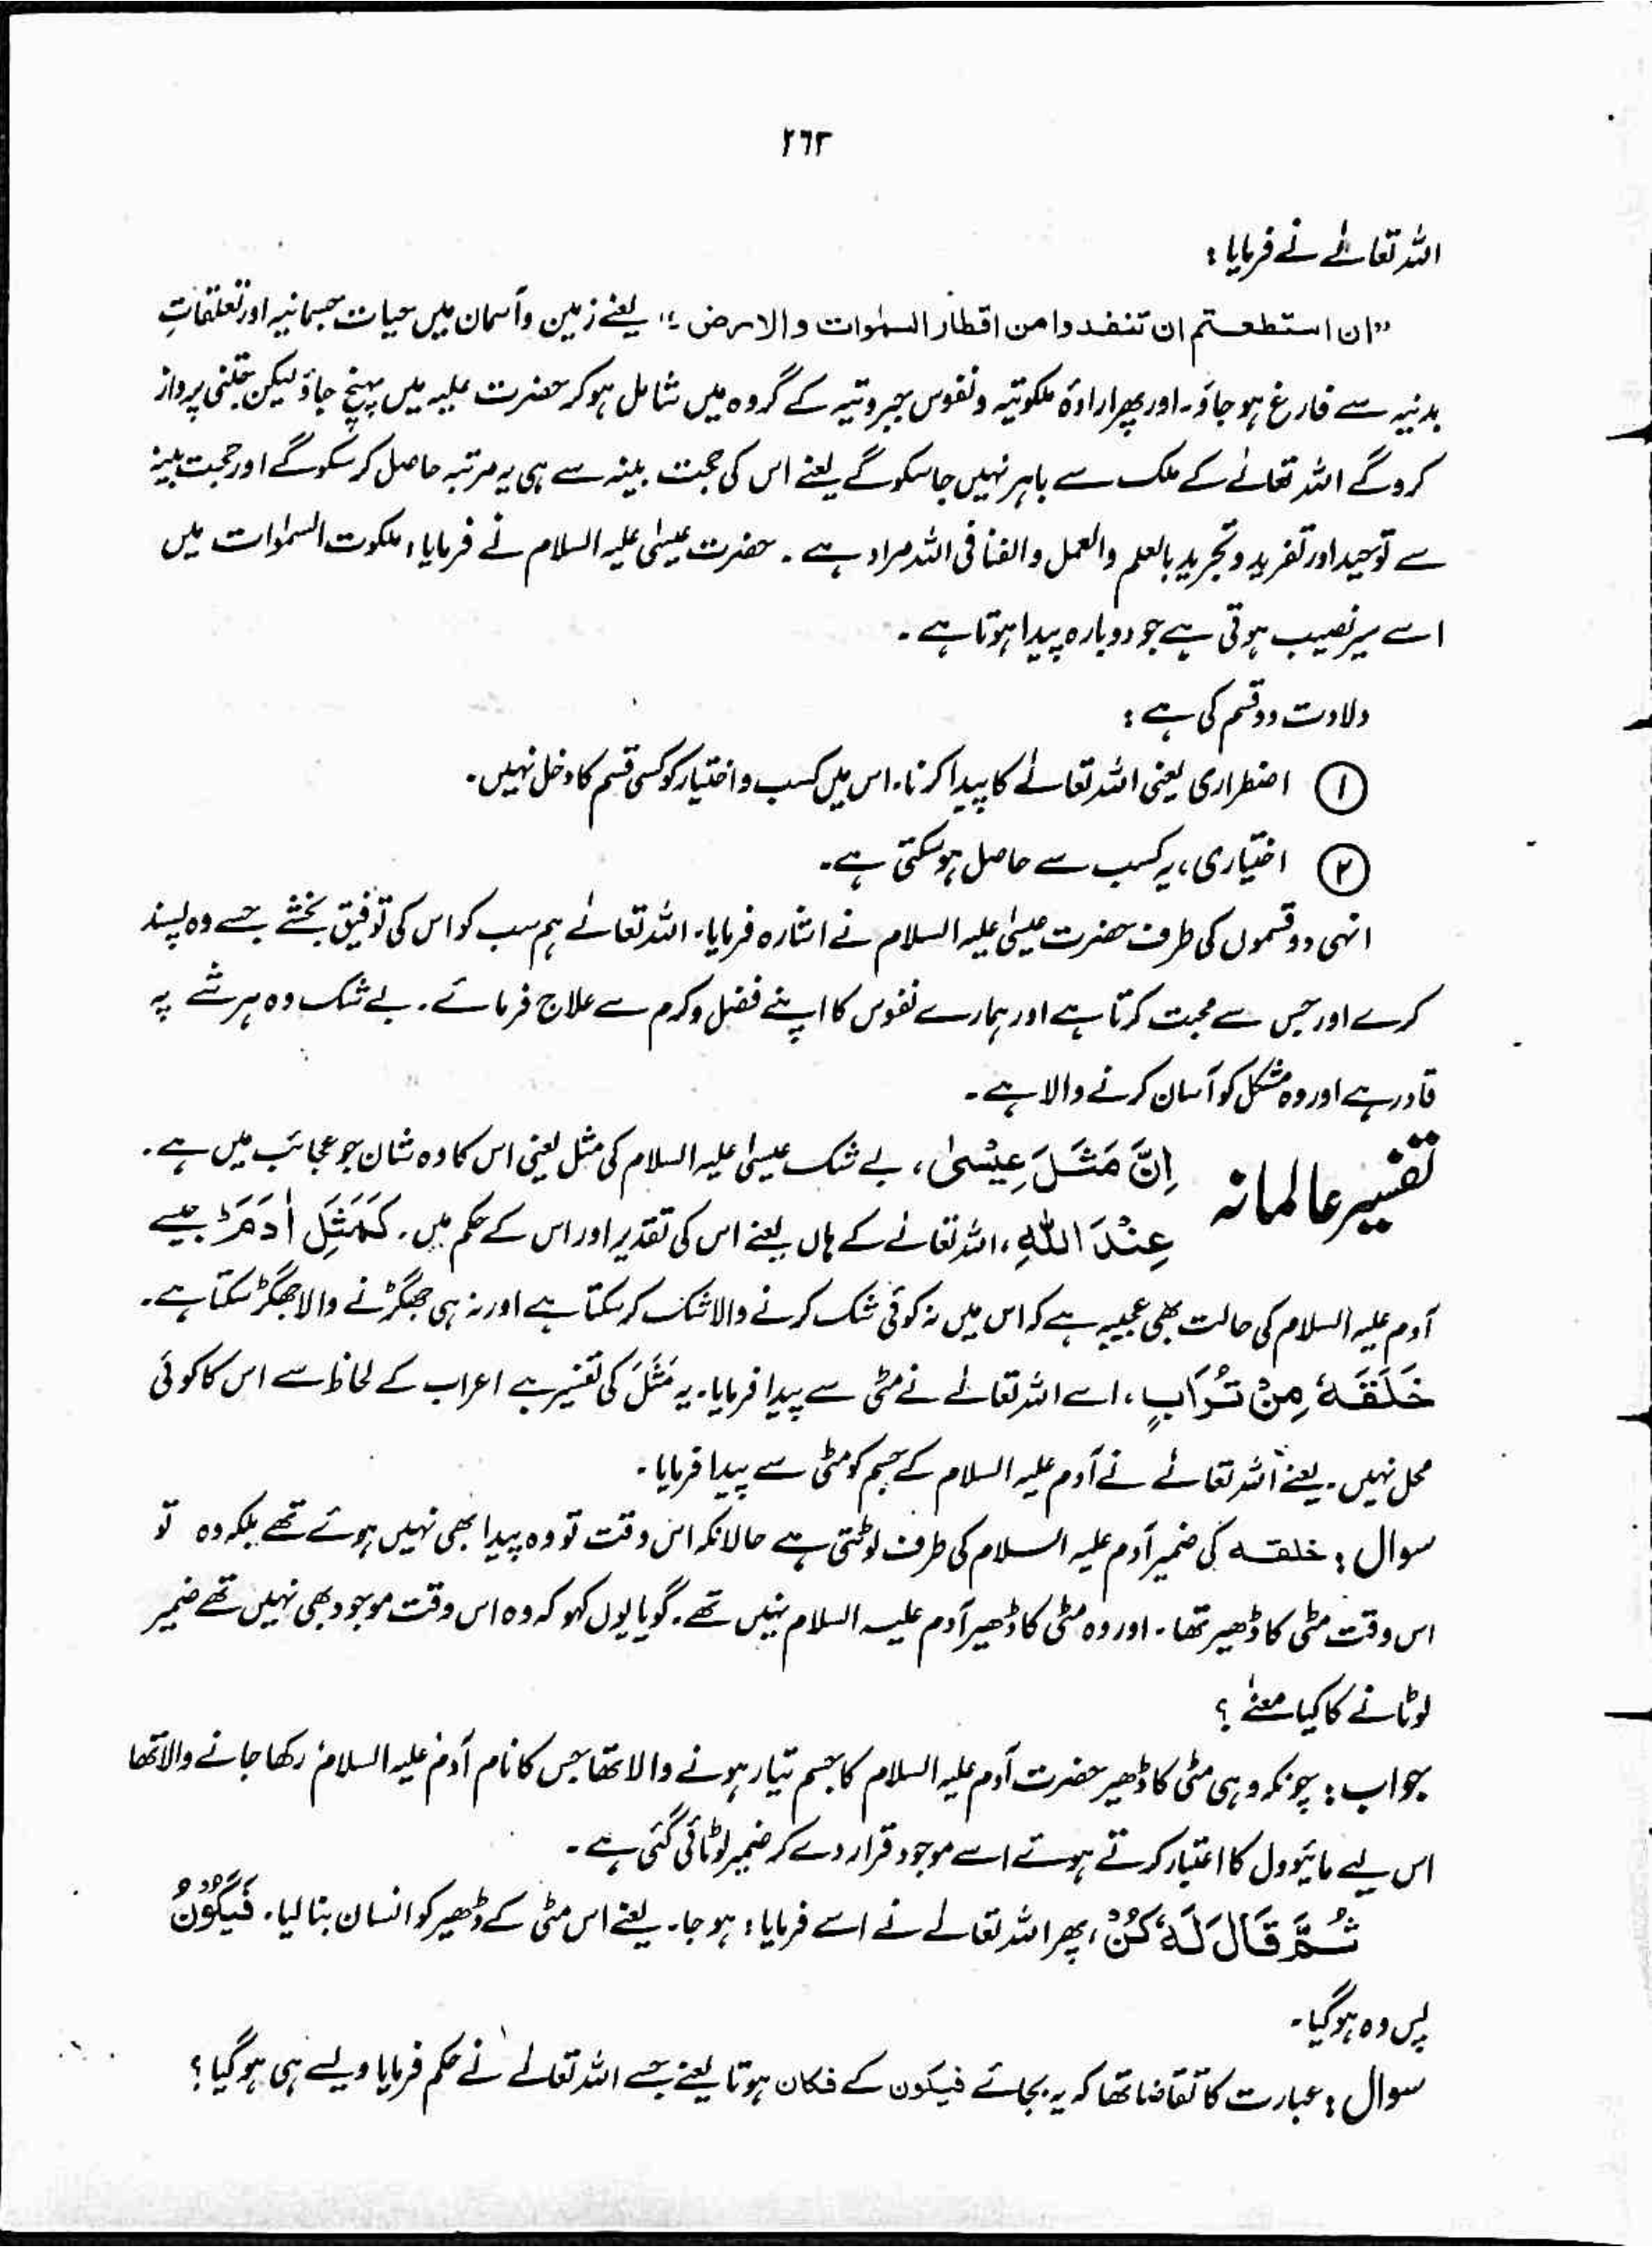 ۲۶۲
اللہ تعالےٰ نے فرمایا :
"ان استطعتم ان تنفدوا من اقطار السمٰوات والارض " یعنے زمین و آسمان میں حیات جسمانیہ اور تعلقاتِ
بدنیہ سے فارغ ہو جاؤ۔ اور پھر ارادۂ ملکوتیہ و نفوس جبروتیہ کے گروہ میں شامل ہو کر حضرت علیہ میں پہنچ جاؤ لیکن جتنی پرواز
کرو گے اللہ تعالےٰ کے ملک سے باہر نہیں جا سکو گے یعنے اس کی حجت بینہ سے ہی یہ مرتبہ حاصل کر سکو گے اور حجت بینہ
سے توحید اور تفرید و تجرید بالعلم والعمل والفنا فی اللہ مراد ہے ۔ حضرت عیسٰی علیہ السلام نے فرمایا : ملکوت السمٰوات میں
اسے سیر نصیب ہوتی ہے جو دوبارہ پیدا ہوتا ہے ۔
ولادت دو قسم کی ہے :
① اضطراری یعنی اللہ تعالےٰ کا پیدا کرنا۔ اس میں کسب و اختیار کو کسی قسم کا دخل نہیں۔
② اختیاری ، یہ کسب سے حاصل ہو سکتی ہے۔
انہی دو قسموں کی طرف حضرت عیسٰی علیہ السلام نے اشارہ فرمایا۔ اللہ تعالےٰ ہم سب کو اس کی توفیق بخشے جسے وہ پسند
کرے اور جس سے محبت کرتا ہے اور ہمارے نفوس کا اپنے فضل و کرم سے علاج فرمائے۔ بے شک وہ ہر شے پہ
قادر ہے اور وہ مشکل کو آسان کرنے والا ہے ۔
تفسیر عالمانہ اِنَّ مَثَلَ عِیْسٰی ، بے شک عیسٰی علیہ السلام کی مثل یعنی اس کا وہ شان جو عجائب میں ہے ۔
عِنْدَ اللّٰہِ ، اللہ تعالےٰ کے ہاں یعنے اس کی تقدیر اور اس کے حکم میں ۔ کَمَثَلِ اٰدَمَ ط جیسے
آدم علیہ السلام کی حالت بھی عجیبہ ہے کہ اس میں نہ کوئی شک کرنے والا شک کر سکتا ہے اور نہ ہی جھگڑنے والا جھگڑ سکتا ہے ۔
خَلَقَہٗ مِنْ تُرَابٍ ، اسے اللہ تعالےٰ نے مٹی سے پیدا فرمایا۔ یہ مَثَلَ کی تفسیر ہے اعراب کے لحاظ سے اس کا کوئی
محل نہیں ۔ یعنے اللہ تعالےٰ نے آدم علیہ السلام کے جسم کو مٹی سے پیدا فرمایا ۔
سوال : خلقہ کی ضمیر آدم علیہ السلام کی طرف لوٹتی ہے حالانکہ اس وقت تو وہ پیدا بھی نہیں ہوئے تھے بلکہ وہ تو
اس وقت مٹی کا ڈھیر تھا ۔ اور وہ مٹی کا ڈھیر آدم علیہ السلام نہیں تھے ۔ گویا یوں کہو کہ وہ اس وقت موجود بھی نہیں تھے ضمیر
لوٹانے کا کیا معنےٰ ؟
جواب : چونکہ وہی مٹی کا ڈھیر حضرت آدم علیہ السلام کا جسم تیار ہونے والا تھا جس کا نام آدم علیہ السلام رکھا جانے والا تھا
اس لیے مایَؤول کا اعتبار کرتے ہوئے اسے موجود قرار دے کر ضمیر لوٹائی گئی ہے ۔
ثُمَّ قَالَ لَہٗ کُنْ ، پھر اللہ تعالےٰ نے اسے فرمایا : ہو جا۔ یعنے اس مٹی کے ڈھیر کو انسان بنا لیا ۔ فَیَکُوْنُ
پس وہ ہو گیا ۔
سوال : عبارت کا تقاضا تھا کہ یہ بجائے فیکون کے فکان ہوتا یعنے جسے اللہ تعالےٰ نے حکم فرمایا ویسے ہی ہو گیا ؟